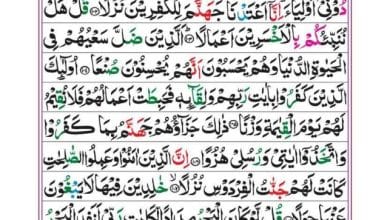 دُوْنِیْۤ اَوْلِیَآءَؕ اِنَّاۤ اَعْتَدْنَا جَهَنَّمَ لِلْكٰفِرِیْنَ نُزُلًا۝۱۰۲ قُلْ هَلْ
نُنَبِّئُكُمْ بِالْاَخْسَرِیْنَ اَعْمَالًا۝۱۰۳ اَلَّذِیْنَ ضَلَّ سَعْیُهُمْ فِی
الْحَیٰوةِ الدُّنْیَا وَهُمْ یَحْسَبُوْنَ اَنَّهُمْ یُحْسِنُوْنَ صُنْعًا۝۱۰۴ اُولٰٓئِكَ
الَّذِیْنَ كَفَرُوْا بِاٰیٰتِ رَبِّهِمْ وَلِقَآئِهٖ فَحَبِطَتْ اَعْمَالُهُمْ فَلَا نُقِیْمُ
لَهُمْ یَوْمَ الْقِیٰمَةِ وَزْنًا۝۱۰۵ ذٰلِكَ جَزَآؤُهُمْ جَهَنَّمُ بِمَا كَفَرُوْا
وَاتَّخَذُوْۤا اٰیٰتِیْ وَرُسُلِیْ هُزُوًا۝۱۰۶ اِنَّ الَّذِیْنَ اٰمَنُوْا وَعَمِلُوا الصّٰلِحٰتِ
كَانَتْ لَهُمْ جَنّٰتُ الْفِرْدَوْسِ نُزُلًا۝۱۰۷ خٰلِدِیْنَ فِیْهَا لَا یَبْغُوْنَ